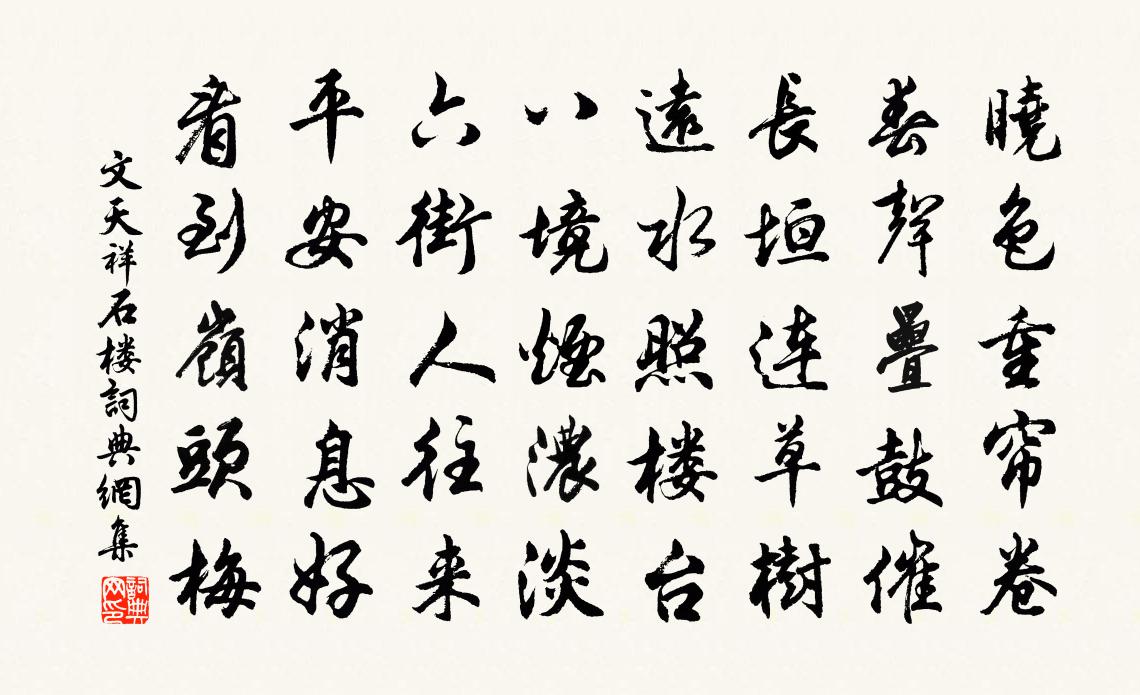 曉色重帘卷
春聲疊鼓催
長垣連草樹
遠水照楼台
八境煙濃淡
六街人往来
平安消息好
看到嶺頭梅
文天祥石楼詞典網集
詞典网印